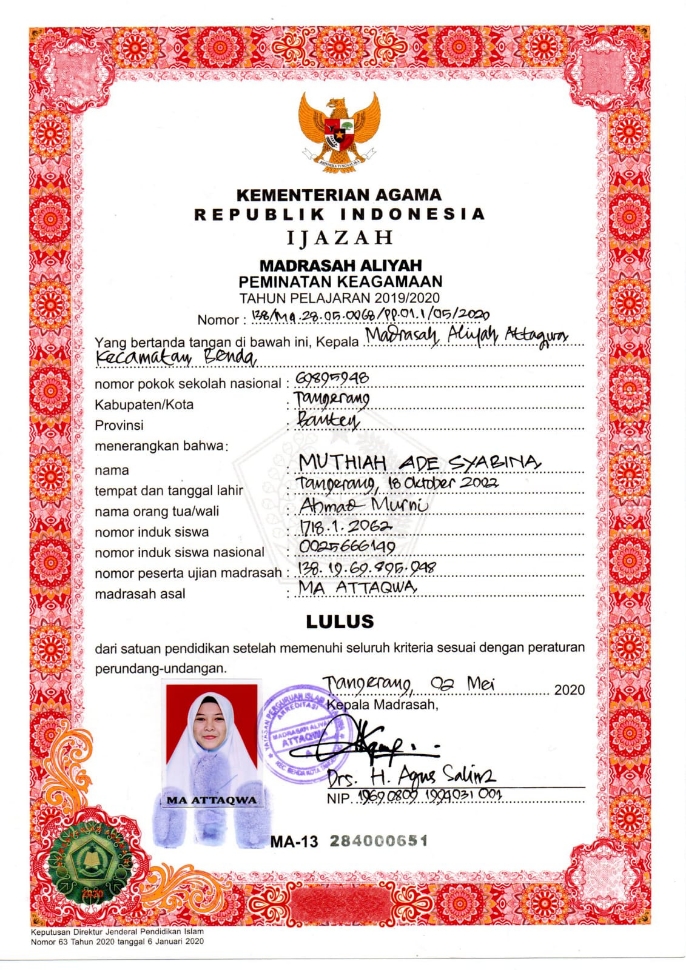 KEMENTERIAN AGAMA
REPUBLIK INDONESIA
IJAZAH
MADRASAH ALIYAH
PEMINATAN KEAGAMAAN
TAHUN PELAJARAN 2019/2020
Nomor : 138/MA.28.05.0068/PP.01.1/05/2020
Yang bertanda tangan di bawah ini, Kepala Madrasah Aliyah Attaqwa
Kecamatan Benda
nomor pokok sekolah nasional : 69895948
Kabupaten/Kota : Tangerang
Provinsi : Banten
menerangkan bahwa:
nama : MUTHIAH ADE SYABINA
tempat dan tanggal lahir : Tangerang, 18 Oktober 2002
nama orang tua/wali : Ahmad Murni
nomor induk siswa : 1718.1.2062
nomor induk siswa nasional : 0025666149
nomor peserta ujian madrasah : 138.19.69.895.948
madrasah asal : MA ATTAQWA
LULUS
dari satuan pendidikan setelah memenuhi seluruh kriteria sesuai dengan peraturan
perundang-undangan.
Tangerang, 02 Mei 2020
Kepala Madrasah,
MADRASAH ALIYAH
ATTAQWA
Drs. H. Agus Salim
NIP. 19690809 199403 1 001
MA ATTAQWA
MA-13 284000651
Keputusan Direktur Jenderal Pendidikan Islam
Nomor 63 Tahun 2020 tanggal 6 Januari 2020